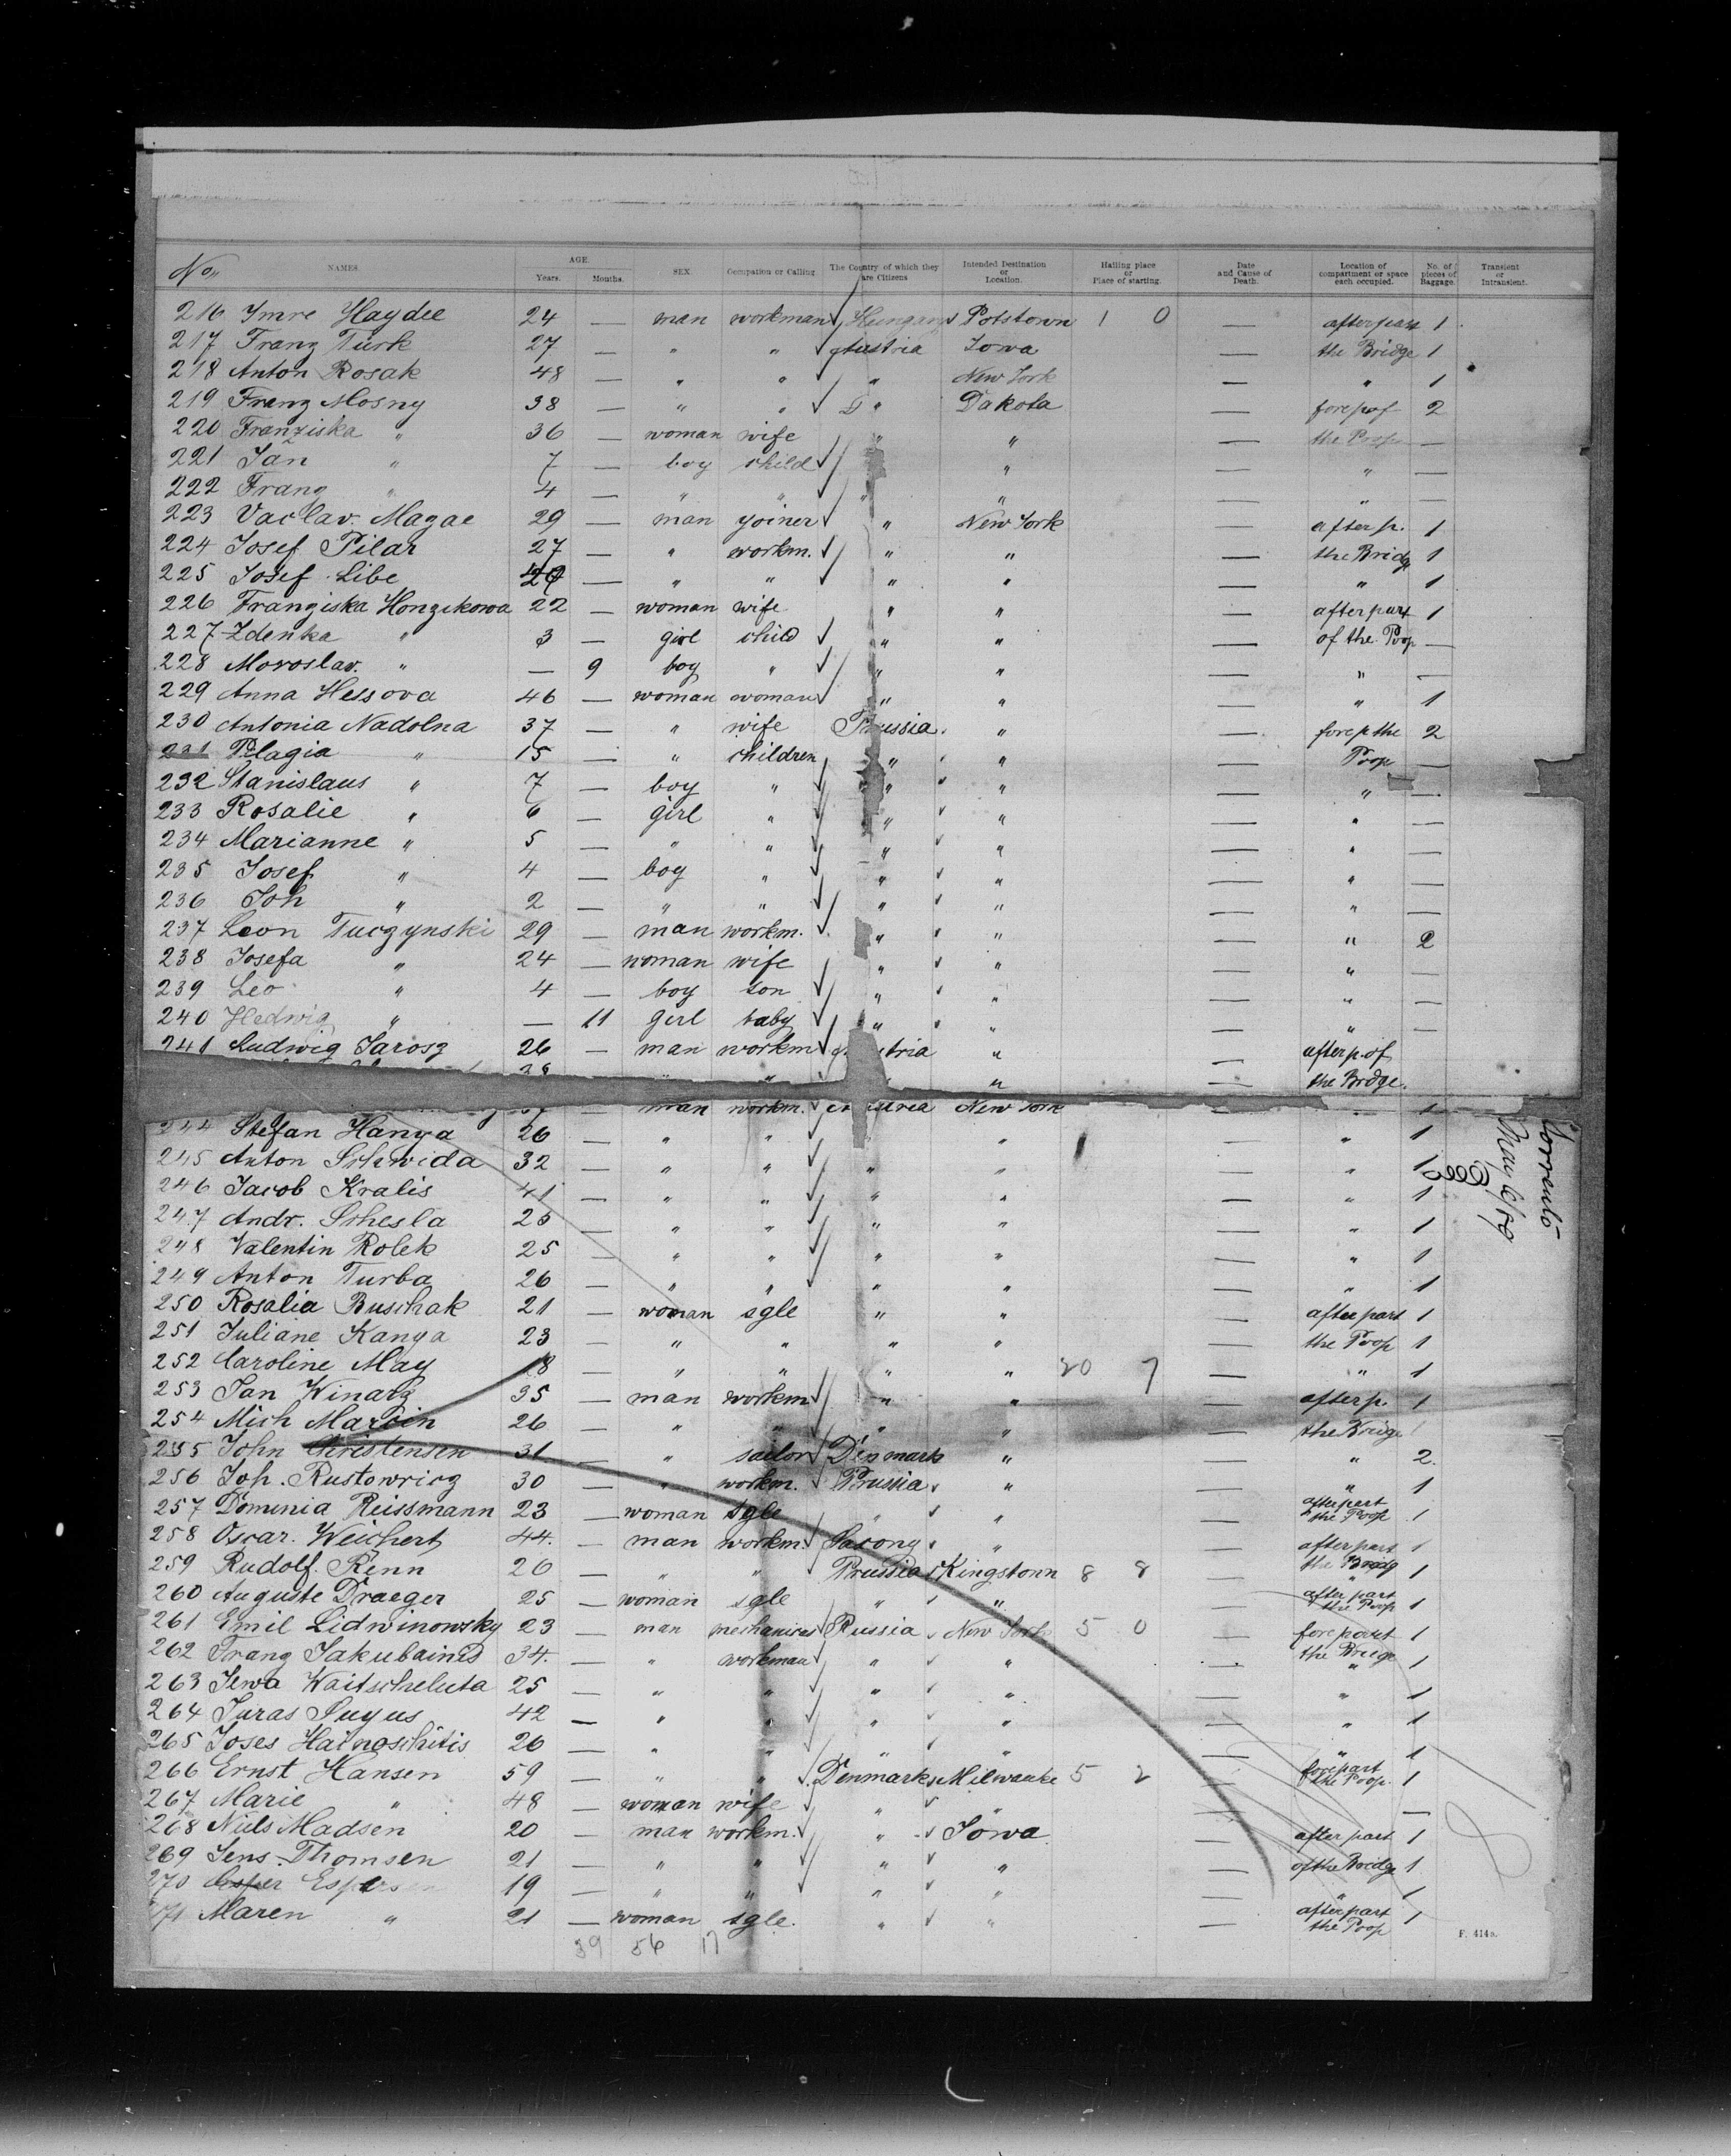 No. NAMES. AGE. Years. Months. SEX. Occupation or Calling The Country of which they are Citizens Intended Destination or Location. Hailing place or Place of starting. Date and Cause of Death. Location of compartment or space each occupied. No. of pieces of Baggage. Transient or Intransient.
216 Imre Haydee 24 — man workman Hungary Potstown 1 0 — after part 1
217 Franz Turk 27 — " " Austria Iowa — the Bridge 1
218 Anton Rosak 48 — " " " New York — " 1
219 Franz Mosny 38 — " " " Dakota — forep of 2
220 Franziska " 36 — woman wife " " — the Poop —
221 Jan " 7 — boy child " " — " —
222 Franz " 4 — " " " " — " —
223 Vaclav. Mazac 29 — man joiner " New York — after p. 1
224 Josef Pilar 27 — " workm. " " — the Bridg 1
225 Josef Libe — " " " " — " 1
226 Franziska Honzikowa 22 — woman wife " " — after part 1
227 Zdenka " 3 — girl child " " — of the Poop —
228 Moroslav. " — 9 boy " " " — " —
229 Anna Hessova 46 — woman woman " " — " 1
230 Antonia Nadolna 37 — " wife Prussia " — forep the 2
231 Pelagia " 15 — " children " " — Poop —
232 Stanislaus " 7 — boy " " " — " —
233 Rosalie " 6 — girl " " " — " —
234 Marianne " 5 — " " " " — " —
235 Josef " 4 — boy " " " — " —
236 Joh " 2 — " " " " — " —
237 Leon Tuczynski 29 — man workm. " " — " 2
238 Josefa " 24 — woman wife " " — " —
239 Leo " 4 — boy son " " — " —
240 Hedwig " — 11 girl baby " " — " —
241 Ludwig Jarosz 26 — man workm " — after p. of
38 " " " — the Bridge.
— man workm. New York — " 1
244 Stefan Hanya 26 — " " " — " 1
245 Anton Schwida 32 — " " " " — " 1
246 Jacob Kralis 41 — " " " " — " 1
247 Andr. Schesla 25 — " " " " — " 1
248 Valentin Rolek 25 — " " " " — " 1
249 Anton Turba 26 — " " " " — " 1
250 Rosalia Buschak 21 — woman sgle " " — after part 1
251 Juliane Kanya 23 — " " " " — the Poop 1
252 Caroline May 18 — " " " " 20 7 — " 1
253 Jan Winarz 35 — man workm " " — after p. 1
254 Mich Marcin 26 — " " " " — the Bridge 1
255 John Christensen 31 — " sailor Denmark " — " 2.
256 Joh. Rustowricz 30 — " workm. Prussia " — " 1
257 Dominia Reissmann 23 — woman sgle " " — after part the Poop 1
258 Oscar. Weichert 44. — man workm. Saxony " — after part 1
259 Rudolf. Renn 20 — " " Prussia Kingstonn 8 8 — the Bridg " 1
260 Auguste Draeger 25 — woman sgle " " — after part the Poop 1
261 Emil Lidwinowsky 23 — man mechanicus Russia New York 5 0 — fore part 1
262 Franz Jakubainis 34. — " workman " " — the Bridge " 1
263 Jewa Waitscheluta 25 — " " " " — " 1
264 Juras Puyus 42 — " " " " — " 1
265 Joses Hainoschitis 26 — " " " " — " 1
266 Ernst Hansen 59 — " " Denmark Milwauke 5 2 — fore part the Poop. 1
267 Marie " 48 — woman wife " " — —
268 Niels Madsen 20 — man workm. " Iowa — after part 1
269 Jens. Thomsen 21 — " " " " — of the Bridge 1
270 19 — " " " " — " 1
271 Maren " 21 — woman sgle. " " — after part the Poop 1
39 56 17
F. 414a.